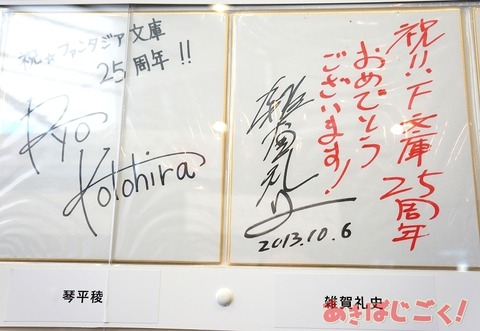 祝☆ファンタジア文庫
25周年!!
Ryo
Kotohira
祝!!F文庫25周年
おめでとう
ございます!
雑賀礼史
2013.10.6
琴平稜
雑賀礼史
あきばじごく!